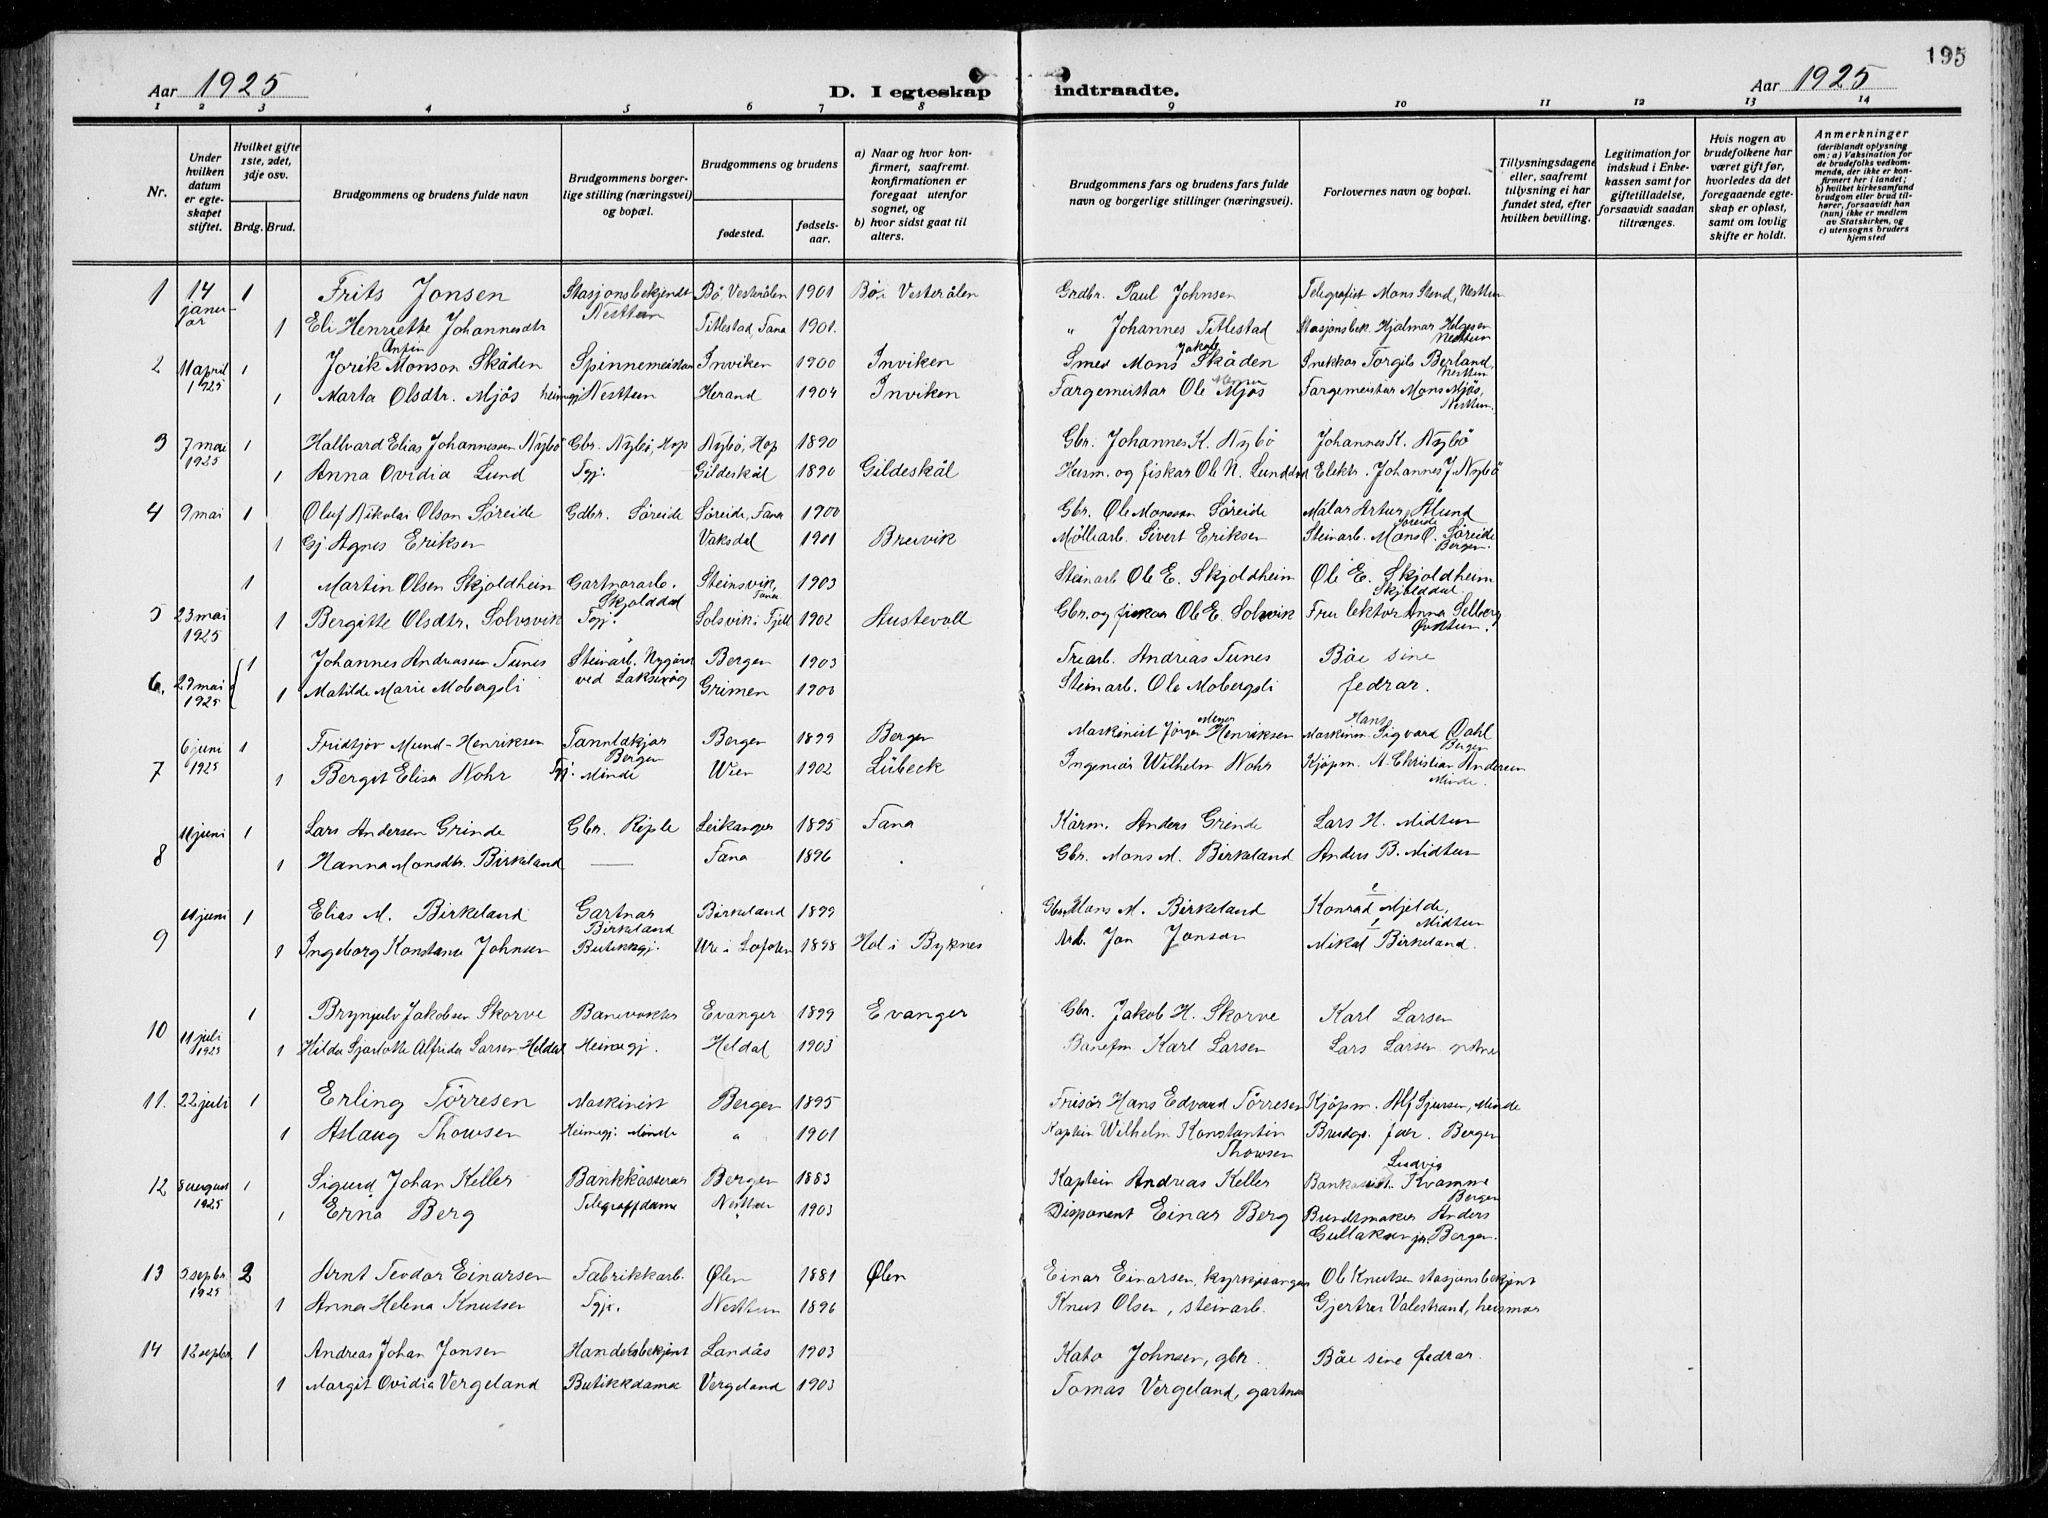 195
Aar 1925
D. I egteskap indtraadte.
Aar 1925
1 2 3 4 5 6 7 8 9 10 11 12 13 14
Nr.
Under hvilken datum er egteskapet stiftet.
Hvilket gifte 1ste, 2det, 3dje osv.
Brdg. Brud.
Brudgommens og brudens fulde navn
Brudgommens borgerlige stilling (næringsvei) og bopæl.
Brudgommens og brudens
fødested.
fødselsaar.
a) Naar og hvor konfirmert, saafremt konfirmationen er foregaat utenfor sognet, og
b) hvor sidst gaat til alters.
Brudgommens fars og brudens fars fulde navn og borgerlige stillinger (næringsvei).
Forlovernes navn og bopæl.
Tillysningsdagene eller, saafremt tillysning ei har fundet sted, efter hvilken bevilling.
Legitimation for indskud i Enkekassen samt for giftetilladelse, forsaavidt saadan tiltrænges.
Hvis nogen av brudefolkene har været gift før, hvorledes da det foregaaende egteskap er opløst, samt om lovlig skifte er holdt.
Anmerkninger (deriblandt oplysning om: a) Vaksination for de brudefolks vedkommende, der ikke er konfirmert her i landet; b) hvilket kirkesamfund brudgom eller brud tilhører, forsaavidt han (hun) ikke er medlem av Statskirken, og c) utensogns bruders hjemsted
1 14 januar 1 Frits Jonsen Stasjonsbekjendt Nesttun Bø, Vesterålen 1901 Bø i Vesterålen Grdbr. Paul Johnsen Telegrafist Mons Stend, Nesttun
1 Eli Henriette Johannesdtr Titlestad, Fana 1901. " Johannes Titlestad Stasjonsbek. Hjalmar Helgesen Nesttun
2 11 april 1925 1 Jorik Antin Monson Skåden Spinnemeistar Inviken 1900 Inviken Smed Mons Jakob Skåden Snekkar Torgils Berland, Nesttun
1 Marta Olsdtr. Mjøs heimegj Nesttun Herand 1904 Inviken Fargemeistar Ole Mjøs Fargemeistar Mons Mjøs, Nesttun.
3 7 mai 1925 1 Hallvard Elias Johannessen Nybø Gbr. Nybø, Hop Nybø, Hop 1890 Gbr. Johannes K. Nybø Johannes K. Nybø
1 Anna Ovidia Lund Tgj. Gildeskål 1890 Gildeskål Husm. og fiskar Ole N. Lunddad Elektr. Johannes J Nybø
4 9 mai 1 Oluf Nikolai Olson Søreide Gdbr. Søreide Søreide, Fana 1900 Gbr. Ole Monssen Søreide Målar Artur Ålund Søreide
1 Gj Agnes Eriksen Vaksdal 1901 Breivik Møllearb. Sivert Eriksen Steinarb. Mons O. Søreide Bergen.
1 Martin Olsen Skjoldheim Gartnerarb. Skjolddal Steinsvik, Fana 1903 Steinarb Ole E. Skjoldheim Ole E. Skjoldheim Skjolddal
5 23 mai 1925 1 Bergitte Olsdtr. Solvsvik Tgj. Solsvik i Fjell 1902 Austevoll Gbr. og fiskar Ole E. Solsvik Fru lektor Anna Selberg Øvsttun.
1 Johannes Andreassen Tunes Steinarb. Nygård ved Laksevåg Bergen 1903 Trearb. Andreas Tunes Båe sine
6. 29 mai 1925 1 Matilde Marie Mobergsli Grimen 1900 Steinarb. Ole Mobergsli fedrar.
6 juni 1925 1 Fridtjov Mund-Henriksen Tannlækjar Bergen Bergen 1899 Bergen Maskinist Jørgen Meyer Henriksen Maskinm. Hans Sigvard Dahl Bergen
7 1 Bergit Elisa Nohr Tgj. Minde Wien 1902 Lübeck Ingeniør Wilhelm Nohr Kjøpm. A. Christian Andersen Minde.
11 juni 1 Lars Andersen Grinde Gbr. Riple Leikanger 1895 Fana Kårm. Anders Grinde Lars H. Midtun
8 1 Hanna Monsdtr. Birkeland Fana 1896 Gbr. Mons M. Birkeland Anders B. Midtun
11 juni 1 Elias M. Birkeland Gartnar Birkeland Birkeland 1899 Gbr. Mons M. Birkeland Konrad Mjelde, Midtun
9 1 Ingeborg Konstance Johnsen Butikkgj. Ure i Lofoten 1898 Hol i Byknes Arb. Jon Jonson Mikal Birkeland.
1 Brynjulv Jakobsen Skorve Banevokter Evanger 1899 Evanger Gbr. Jakob H. Skorve Karl Larsen
10 11 juli 1925 1 Hilda Sjarlotte Alfrida Larsen Heldal Heimegj. Heldal 1903 Banefm Karl Larsen Lars Larsen
11. 22 juli 1 Erling Tørresen Maskinist Bergen 1895 Frisør Hans Edvard Tørresen Kjøpm. Alf Sjursen, Minde
1 Aslaug Thowsen Heimegj. Minde " 1901 Kaptein Wilhelm Konstantin Thowsen Brudgs. far. Bergen
12 8 august 1925 1 Sigurd Johan Keller Bankkasserar Bergen 1883 Kaptein Andreas Keller Bankassist. Ludvig Kvamme Bergen
1 Erna Berg Telegrafdame Nesttun 1903 Disponent Einar Berg Buntmaker Anders Gullaksen jr. Bergen.
13 5 septbr. 1925 2 Arnt Teodor Einarsen Fabrikkarb. Ølen 1881 Ølen Einar Einarsen, kyrkjesangar Ole Knutsen stasjonsbekjent
1 Anna Helena Knutsen Tgj. Nesttun 1896 Knut Olsen, steinarb. Gjertres Valestrand, heismar
14 12 septbr. 1 Andreas Johan Jonsen Handelsbekjent Landås 1903 Kato Johnsen, gbr. Båe sine fedrar.
1 Margit Ovidia Vergeland Butikkdama Vergeland 1903 Tomas Vergeland, gartnar